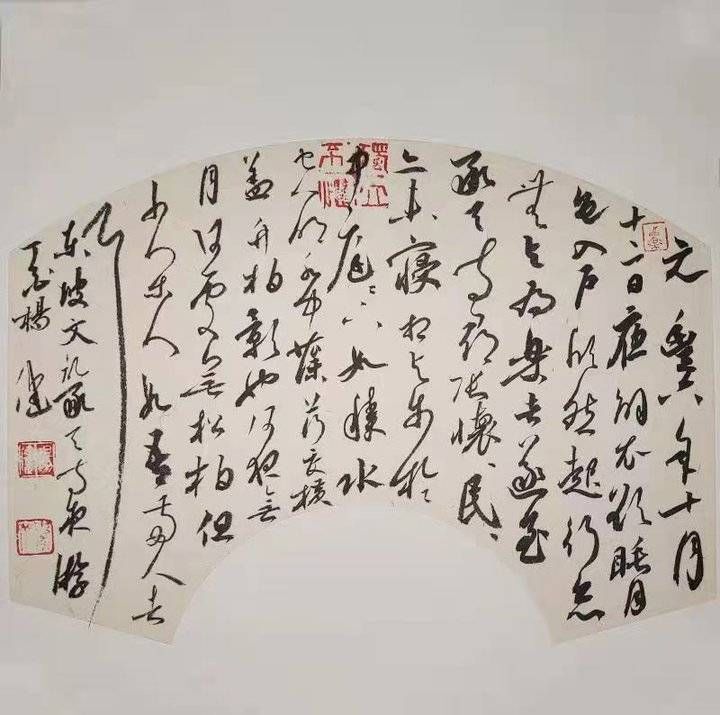 元豐六年十月
十二日夜解衣欲睡月
色入户欣然起行念
無与为樂者遂至
承天寺寻张懷〻民〻
亦未寢相与步於
中庭〻下如積水
空明水中藻荇交横
盖竹柏影也何夜無
月何處無松柏但
少闲人如吾兩人者
耳
東坡文記承天寺夜游
楊